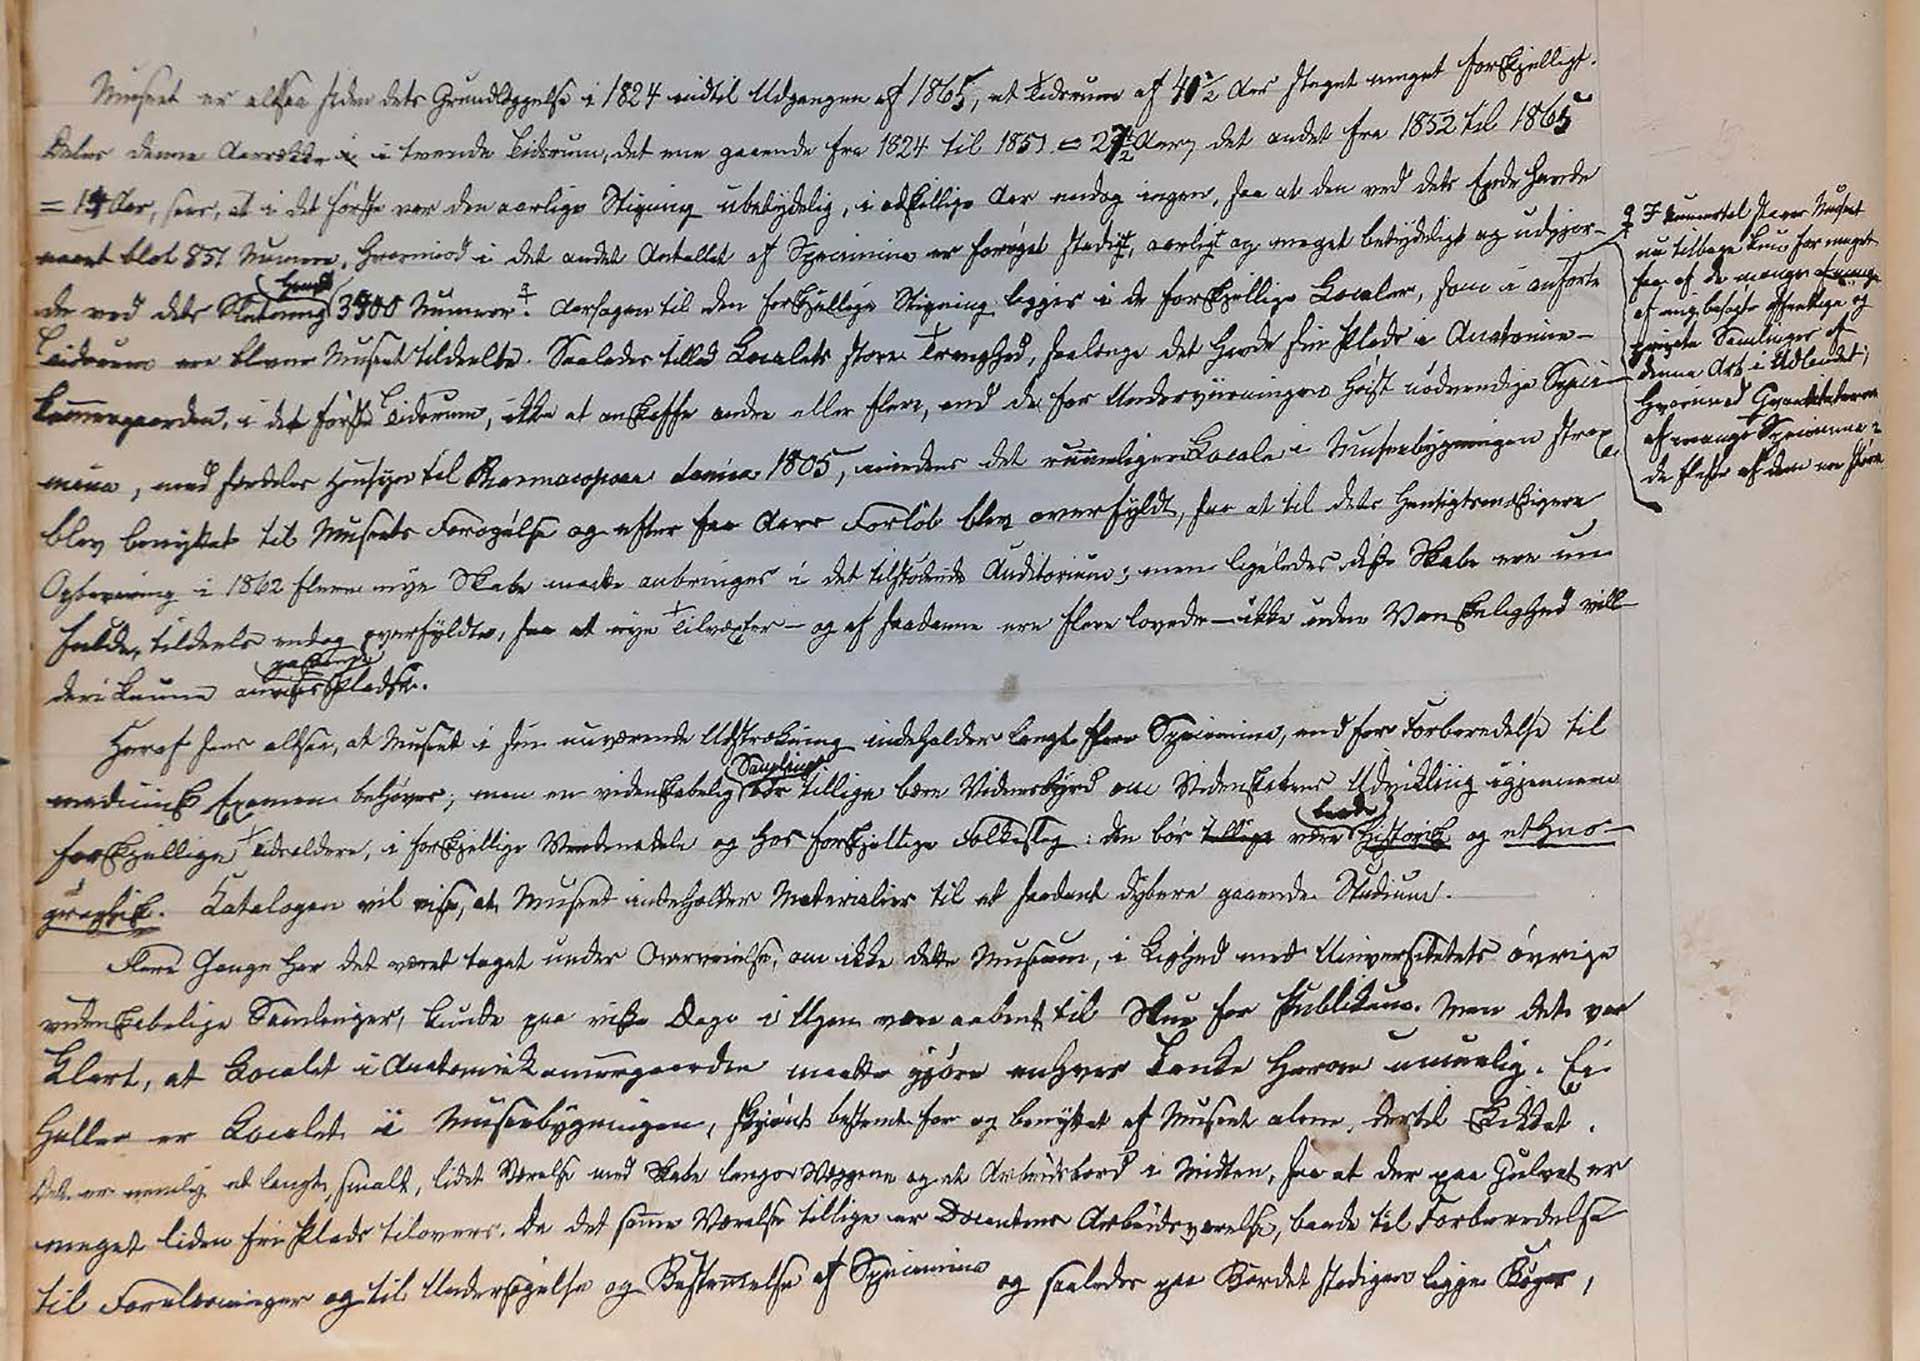 Museet er altsaa siden dets Grundlæggelse i 1824 indtil Udgangen af 1865, et Tidsrum af 41½ Aar steget meget forskjelligt.
Deles denne Aarrække i tvende Tidsrum, det ene gaaende fra 1824 til 1851 = 27½ Aar, det andet fra 1852 til 1865
= 14 Aar, sees, at i det første var den aarlige Stigning ubetydelig, i adskillige Aar endog ingen, saa at den ved dets Ende havde
naaet blot 851 Numere, hvorimod i det andet Antallet af Specimina er forøget stadigt, aarligt og meget betydeligt og udgjor-
de ved dets Slutning 3500 Numere. Aarsagen til den forskjellige Stigning ligger i de forskjellige Localer, som i anførte
Tidsrum ere blevne Museet tildeelte. Saaledes tillod Localets store Tranghed, saalænge det havde sin Plads i Anatomie-
kammergaarden, i det første Tidsrum, ikke at anskaffe andre eller flere, end de for Underviisningen høist nødvendige Speci-
mina, med særdeles Hensyn til Pharmacopoea danica 1805, imedens det rummeligere Locale i Museebygningen strax
blev benyttet til Museets Forøgelse og efter faa Aars Forløb blev overfyldt, saa at til dets hensigtsmæssigere
Opbevaring i 1862 flere nye Skabe maatte anbringes i det tilstødende Auditorium; men ligeledes disse Skabe ere nu
fulde, tildeels endog overfyldte, saa at nye Tilvæxter – og af saadanne ere flere lovede – ikke uden Vanskelighed vill-
de kunne anvises Pladse.
passende
Heraf sees altsaa, at Museet i sin nuværende Udstrækning indeholder langt flere Specimina, end for Forberedelse til
medicinsk Examen behøves; men en videnskabelig Samling bør tillige bære Vidnesbyrd om Videnskabens Udvikling igjennem
forskjellige Tidsaldere, i forskjellige Verdensdele og hos forskjellige Folkeslag: den bør tillige være baade historisk og ethno-
graphisk. Katalogen vil vise, at Museet indeholder Materialier til et saadant dybere gaaende Studium.
Flere Gange har det været taget under Overveielse, om ikke dette Museum, i Lighed med Universitetets øvrige
videnskabelige Samlinger, kunde paa visse Dage i Ugen være aabent til Skue for Publikum. Men det var
klart, at Localet i Anatomiekammergaarden maatte gjøre enhver Tanke herom umuelig. Ei
heller er Localet i Museebygningen, skjøndt bestemt for og benyttet af Museet alene, dertil skikket.
Det er nemlig et langt, smalt, lidet Værelse med Skabe langs Væggene og et Arbeidsbord i Midten, saa at der paa Gulvet er
meget liden fri Plads tilovers. Da det samme Værelse tillige er Docentens Arbeidsværelse, baade til Forberedelse
til Forelæsninger og til Undersøgelse og Bestemmelse af Specimina og saaledes paa Bordet stadigen ligge Bøger,
I Numertal staaer Museet
nu tilbage kun for meget
faa af de mange
af mig besøgte offentlige og
private Samlinger af
denne Art i Udlandet;
hvorimod Qvantiteterne
af mange Specimina
de fleste af dem ere større